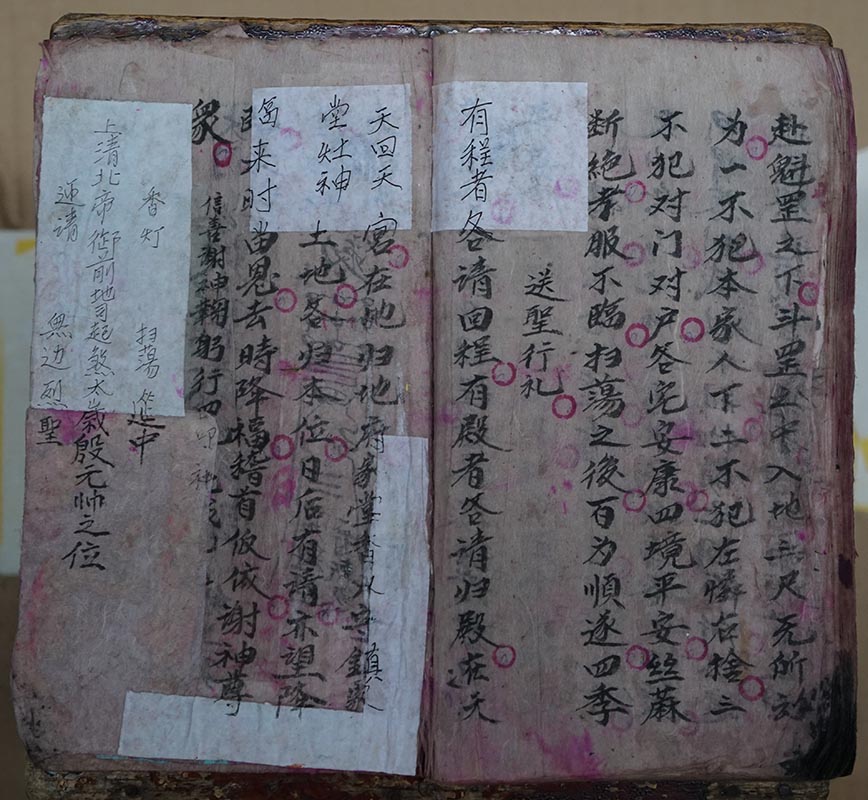 赴魁罡之下斗罡之中入地三尺无所
为一不犯本家人丁二不犯左憐右捨三
不犯对门对户各宅安康四境平安丝蔴
断绝孝服不臨扫蕩之後百为順遂四季
送聖行礼
有程者各请回程有殿者各请归殿在天
天回天宫在地归地府家堂香火守鎮家
堂灶神土地各归本位日后有请不望降
臨来时留恩去時降福稽首仮依谢神尊
衆信喜谢神鞠躬行四
香灯扫蕩筵中
上清北帝御前地司起煞太歲殷元帅之位
迎请無边烈聖